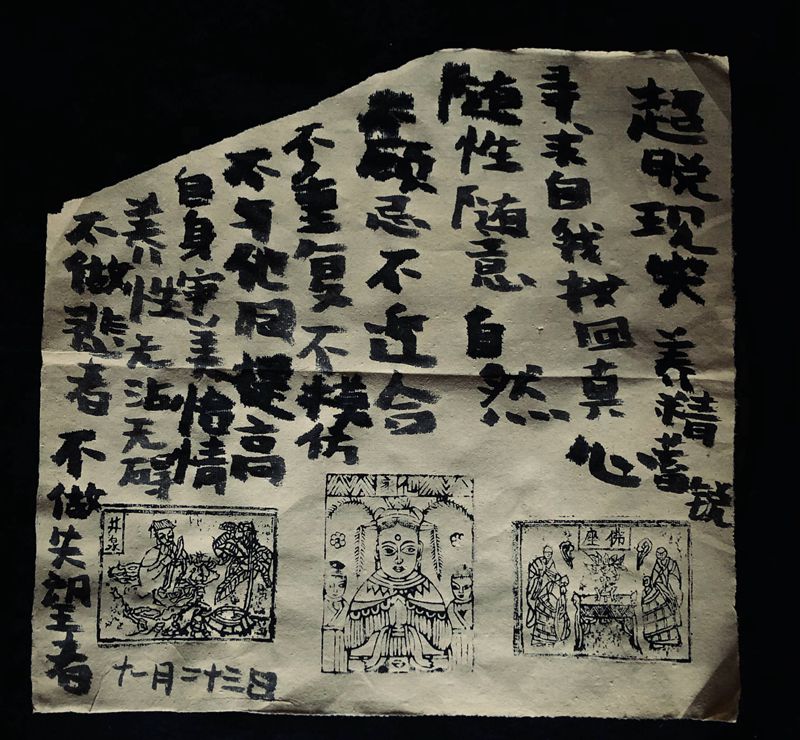 超脱现实 养精蓄锐
寻求自我找回真心
随性随意 自然
顾忌不迎合
不重复不模仿
不与他同提高
自身审美怡情
养心性无沾无碍
不做悲者 不做失望者
十一月二十三日
佛座
井泉